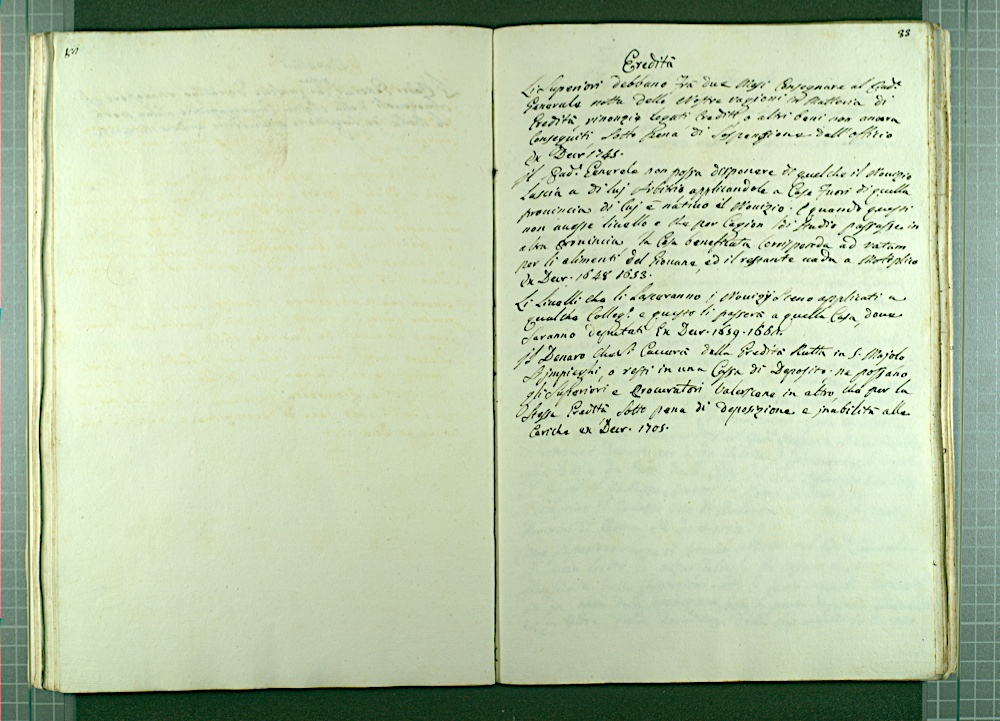 88
Eredità
Li Superiori debbano Frà due Mesi Consegnare al
Generale notta delle Nostre ragioni in Matteria di
Eredità, rinonzie legati Crediti o altri beni non ancora
Conseguiti sotto pena di Sospensione dall'officio
Ex Decr. 1745.
Il Generale non possa disponere di quel che il Novizio
Lascia a di lui Arbitrio applicandole a Casa Fuori di quella
provincia di Cui è nativo il Novizio. E quando questi
non avesse livello e che per Cagion di Studio passasse in
altra Provincia la Casa beneficata Corrisponda ad ratum
per li alimenti del Giovane, ed il restante vada a Moltiplico
Ex Decr. 1648 1653.
Li Livelli che si Lasceranno i Novizij Sieno applicati a
qualche Colleg.o e questo li passerà a quella Casa, dove
Saranno deputati Ex Decr. 1659.
Il Denaro che Si Caverà della Eredità Rutta in S. Majolo
S'impieghi, o resti in una Cassa di Deposito ne possano
gli Superiori e Procuratori Valersene in altro, che per la
Stessa Eredità Sotto pena di deposizione e inabilità alle
Cariche ex Decr. 1705.